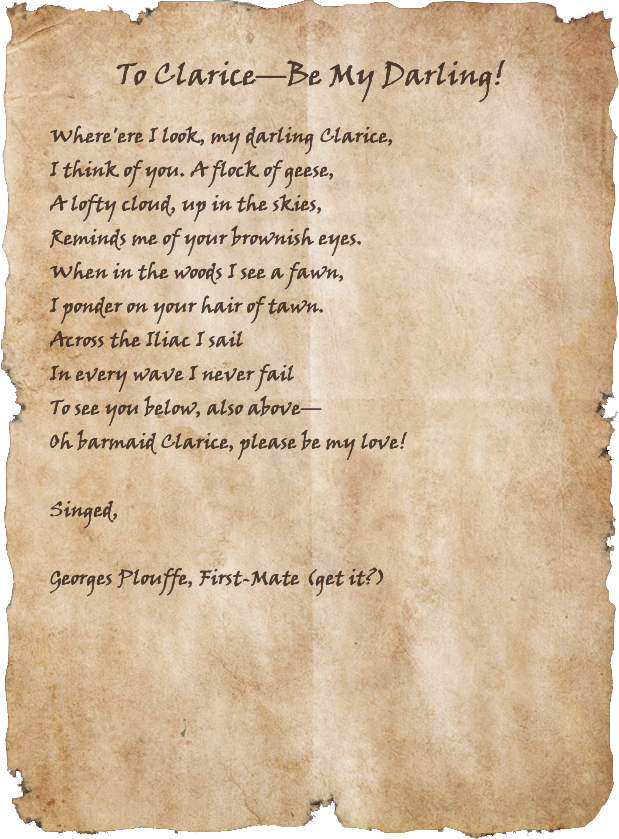 To Clarice—Be My Darling!
Where'ere I look, my darling Clarice,
I think of you. A flock of geese,
A lofty cloud, up in the skies,
Reminds me of your brownish eyes.
When in the woods I see a fawn,
I ponder on your hair of tawn.
Across the Iliac I sail
In every wave I never fail
To see you below, also above—
Oh barmaid Clarice, please be my love!
Singed,
Georges Plouffe, First-Mate (get it?)